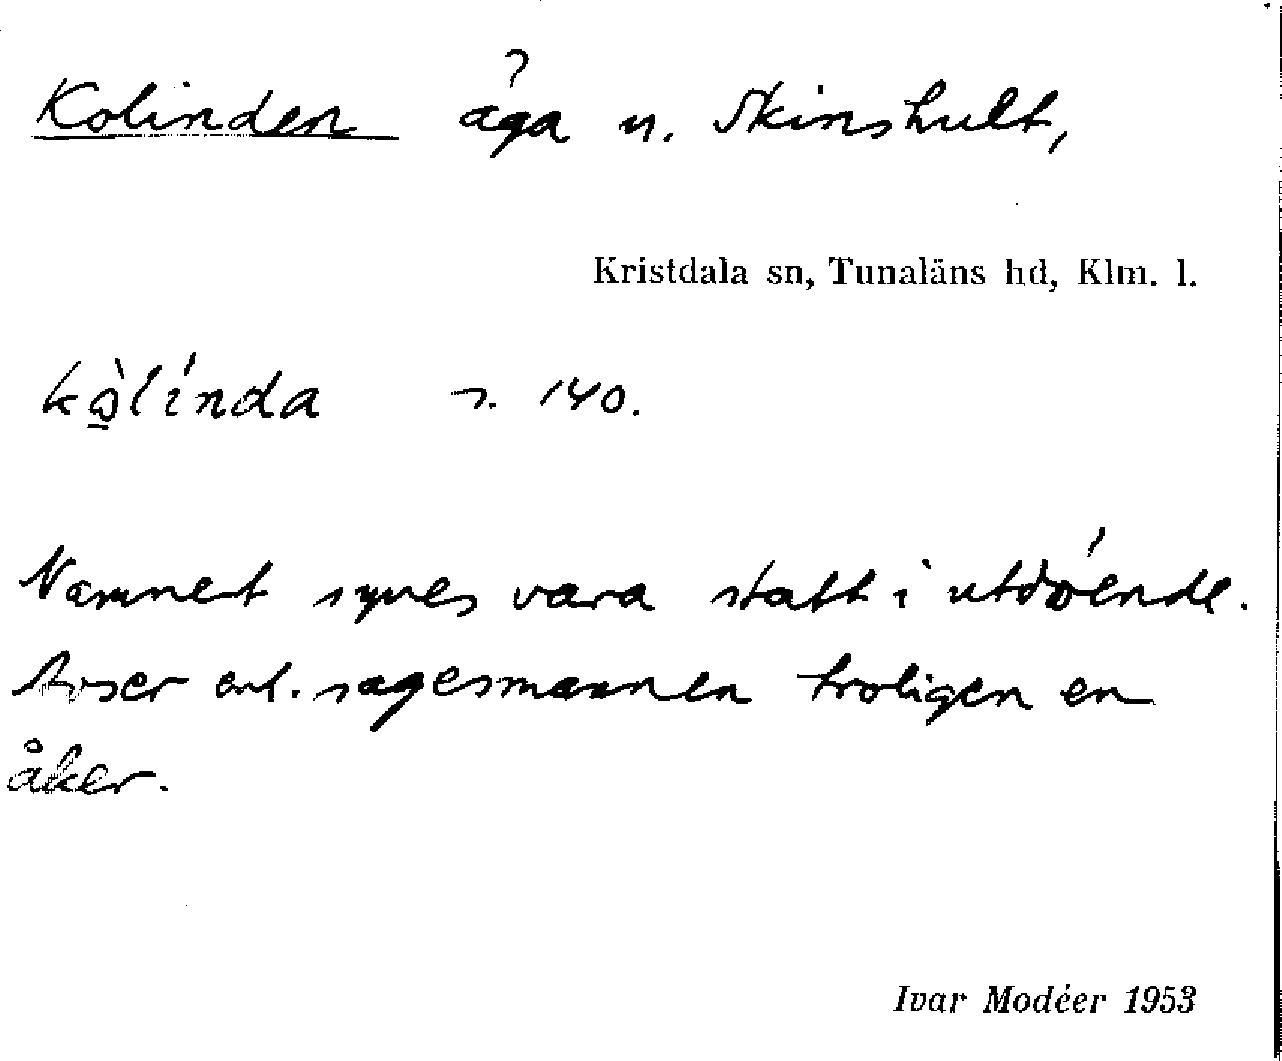 Kolinden äga n. Skinshult,
Kristdala sn, Tunaläns hd, Klm. l.
kò̱línda s. 140.
Namnet synes vara statt i utdöende.
Avser enl. sagesmannen troligen en
åker.
Ivar Modéer 1953